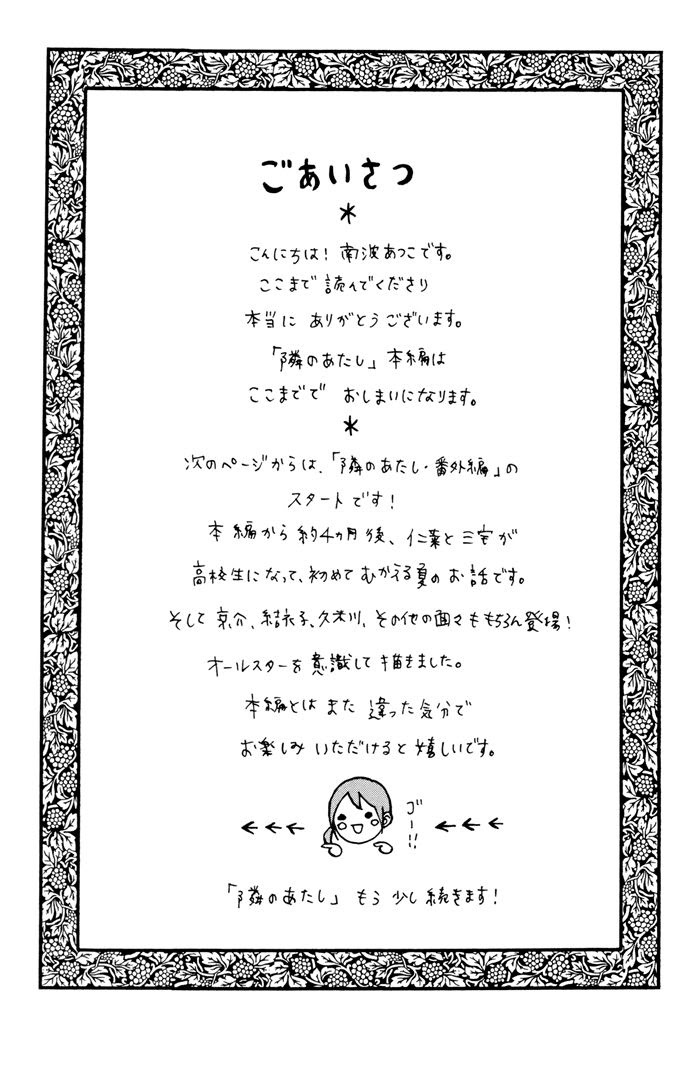 ごあいさつ
*
こんにちは! 南波あつこです。
ここまで 読んでくださり
本当に ありがとうございます。
「隣のあたし」本編は
ここまでで おしまいになります。
*
次のページからは、「隣のあたし・番外編」の
スタートです!
本編から 約4ヵ月後、仁菜と三宅が
高校生になって、初めて むかえる夏の お話です。
そして 京介、結衣子、久米川、その他の面々ももちろん登場!
オールスターを意識して描きました。
本編とは また 違った気分で
お楽しみ いただけると 嬉しいです。
←←← ゴー!! ←←←
「隣のあたし」 もう 少し 続きます!